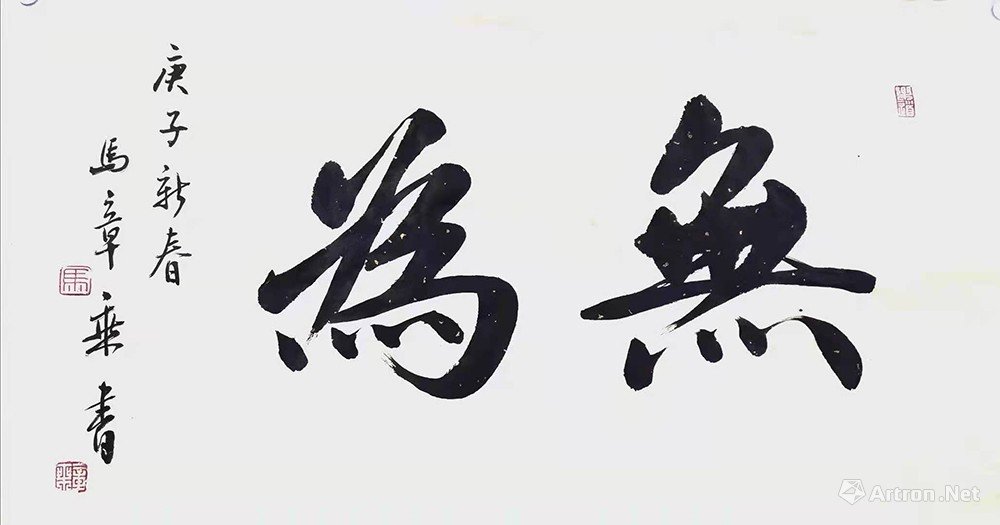 無為
庚子新春
馬章乘書
馬
Artron.Net